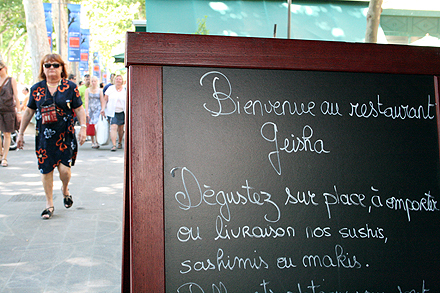 Bienvenue au restaurant
Geisha
Dégustez sur place, à emporter
ou livraison nos sushis,
sashimis ou makis.